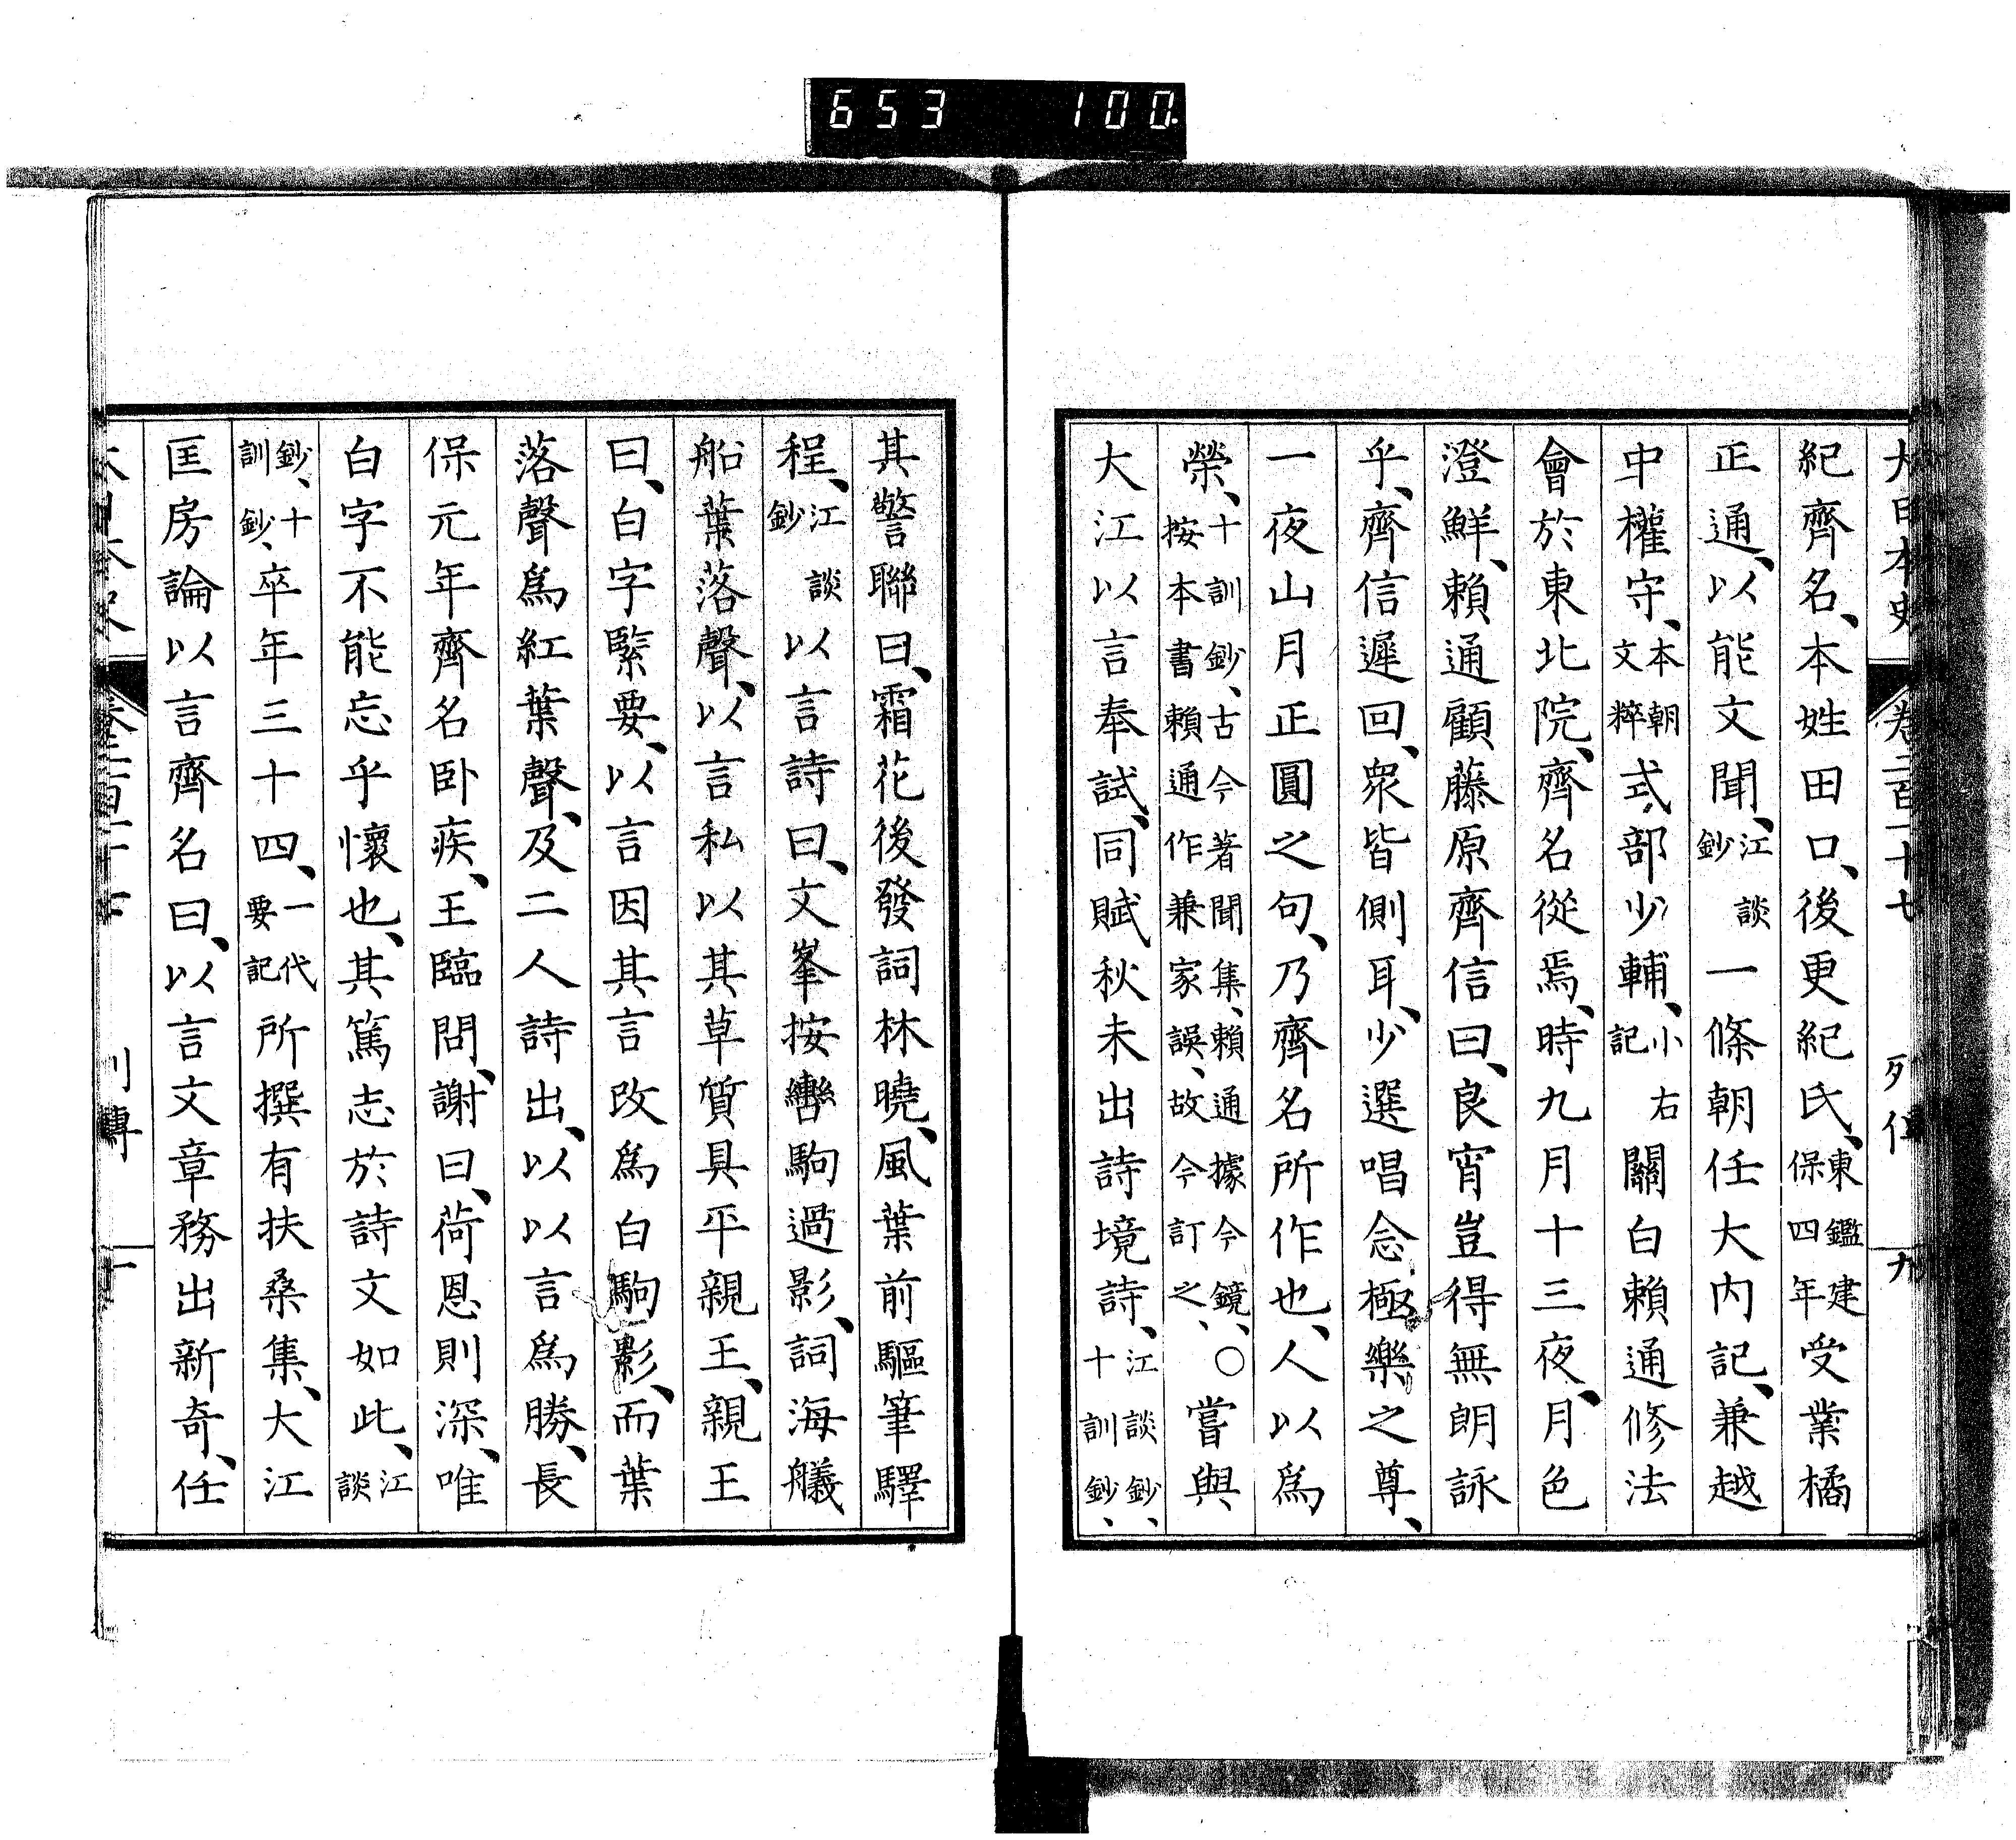 653 100.
大日本史 卷二百十七 列傳 九
紀齊名、本姓田口、後更紀氏、東鑑建保四年受業橘
正通、以能文聞、江談鈔一條朝任大内記、兼越
中權守、本朝文粹式部少輔、小右記關白賴通修法
會於東北院、齊名從焉、時九月十三夜、月色
澄鮮、賴通顧藤原齊信曰、良宵豈得無朗詠
乎、齊信遲回、衆皆側耳、少選唱念極樂之尊、
一夜山月正圓之句、乃齊名所作也、人以爲
榮、十訓鈔、古今著聞集、賴通據今鏡、○按本書賴通作兼家誤、故今訂之、嘗與
大江以言奉試、同賦秋未出詩境詩、江談鈔、十訓鈔、
其警聯曰、霜花後發詞林曉、風葉前驅筆驛
程、江談鈔以言詩曰、文峯按轡駒過影、詞海艤
船葉落聲、以言私以其草質具平親王、親王
曰、白字緊要、以言因其言改爲白駒影、而葉
落聲爲紅葉聲、及二人詩出、以以言爲勝、長
保元年齊名卧疾、王臨問、謝曰、荷恩則深、唯
白字不能忘乎懷也、其篤志於詩文如此、江談
鈔、十訓鈔、卒年三十四、一代要記所撰有扶桑集、大江
匡房論以言齊名曰、以言文章務出新奇、任